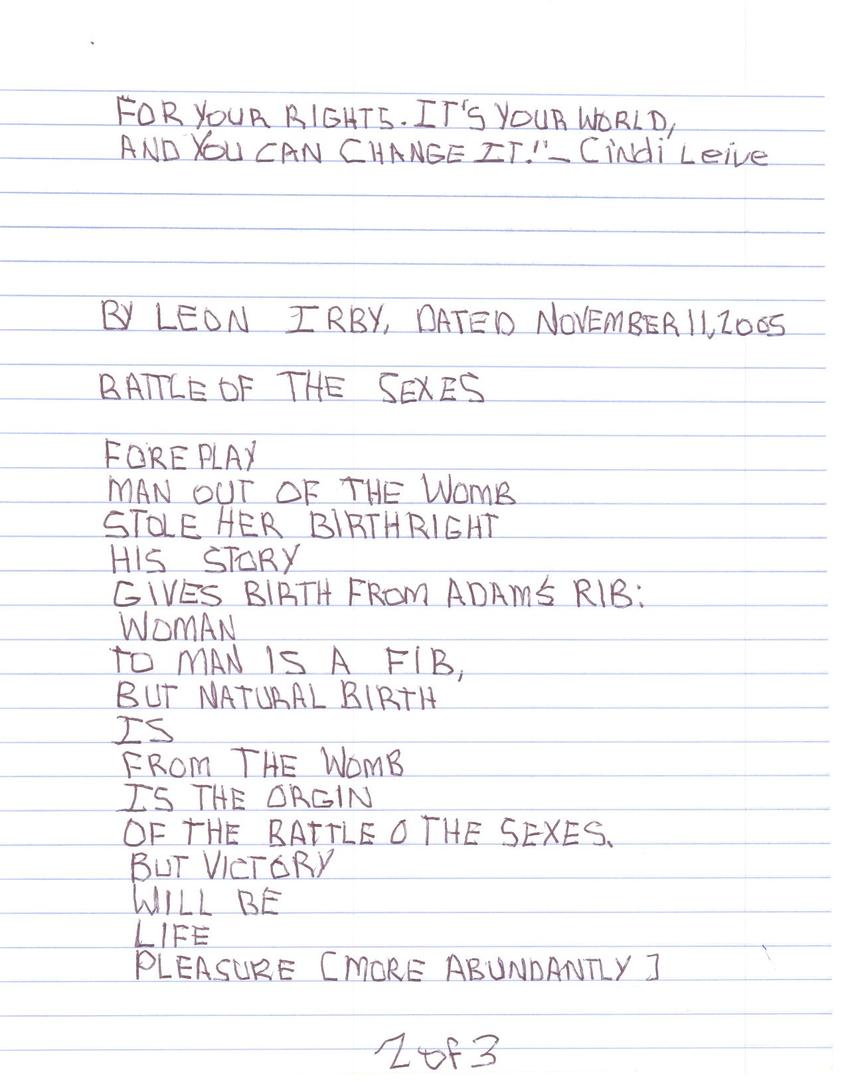 FOR YOUR RIGHTS. IT'S YOUR WORLD,
AND YOU CAN CHANGE IT!" – Cindi Leive
BY LEON IRBY, DATED NOVEMBER 11, 2005
BATTLE OF THE SEXES
FOREPLAY
MAN OUT OF THE WOMB
STOLE HER BIRTHRIGHT
HIS STORY
GIVES BIRTH FROM ADAM'S RIB:
WOMAN
TO MAN IS A FIB,
BUT NATURAL BIRTH
IS
FROM THE WOMB
IS THE ORGIN
OF THE BATTLE O THE SEXES.
BUT VICTORY
WILL BE
LIFE
PLEASURE [MORE ABUNDANTLY]
2 of 3